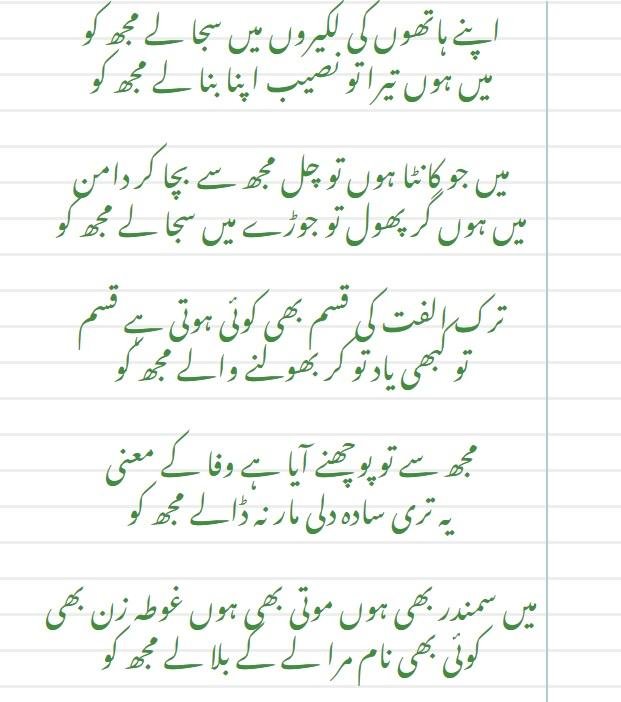 اپنے ہاتھوں کی لکیروں میں سجا لے مجھ کو
میں ہوں تیرا تو نصیب اپنا بنا لے مجھ کو
میں جو کانٹا ہوں تو چل مجھ سے بچا کر دامن
میں ہوں گر پھول تو جوڑے میں سجا لے مجھ کو
ترک الفت کی قسم بھی کوئی ہوتی ہے قسم
تو کبھی یاد تو کر بھولنے والے مجھ کو
مجھ سے تو پوچھنے آیا ہے وفا کے معنی
یہ تری سادہ دلی مار نہ ڈالے مجھ کو
میں سمندر بھی ہوں موتی بھی ہوں غوطہ زن بھی
کوئی بھی نام مرا لے کے بلا لے مجھ کو